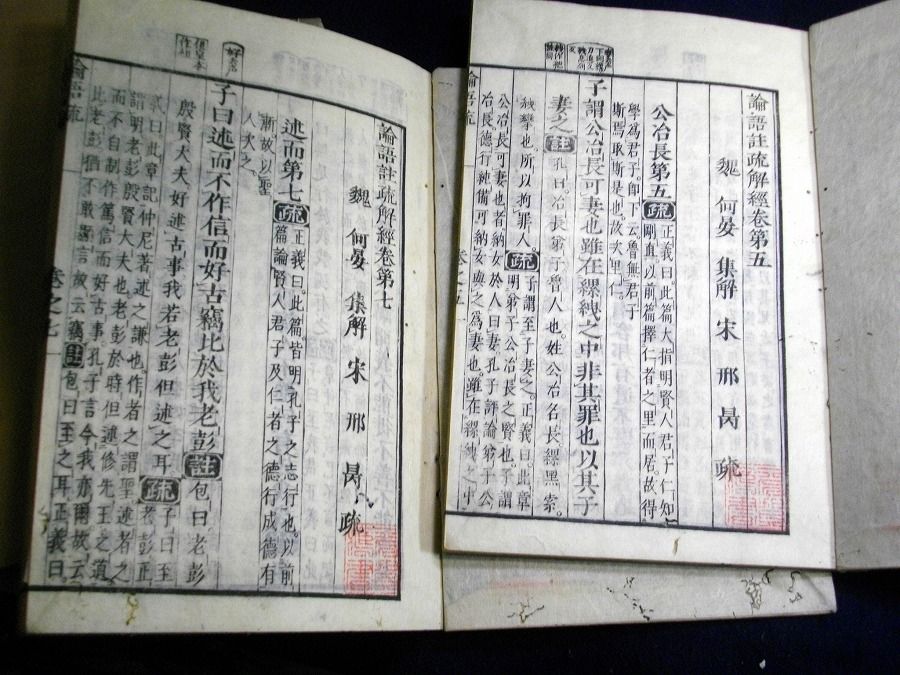 論語註疏解經卷第五
魏 何晏 集解 宋 邢昺 疏
公冶長第五 疏 正義曰。此篇大指明賢人君子仁知
剛直。以前篇擇仁者之里而居。故得
學爲君子。即下云魯無君子
斯焉取斯是也。故次里仁。
子謂公冶長可妻也雖在縲絏之中非其罪也以其子
妻之 註 孔曰冶長弟子魯人也。姓公冶名長縲黑索。
絏攣也。所以拘罪人。 疏 子謂至子妻之。正義曰。此章
明弟子公冶長之賢也。子謂
公冶長可妻也者。納女於人曰妻。孔子評論弟子公
冶長德行純備。可納女與之爲妻也。雖在縲絏之中
論語疏
卷之五
論語註疏解經卷第七
魏 何晏 集解 宋 邢昺 疏
述而第七 疏 正義曰。此篇皆明孔子之志行也。以前
篇論賢人君子及仁者之德行。成德有
漸。故以聖
人次之。
子曰述而不作信而好古竊比於我老彭 註 包曰老彭
殷賢大夫。好述古事。我若老彭但述之耳 疏 子曰至
老彭。正
義曰。此章記仲尼著述之謙也。作者之謂聖。述者之
謂明。老彭殷賢大夫也。老彭於時。但述修先王之道
而不自制作。篤信而好古事。孔子言今我亦爾。故云
比老彭。猶不敢顯言。故云竊 註 包曰至之耳。正義曰。
論語疏
卷之七